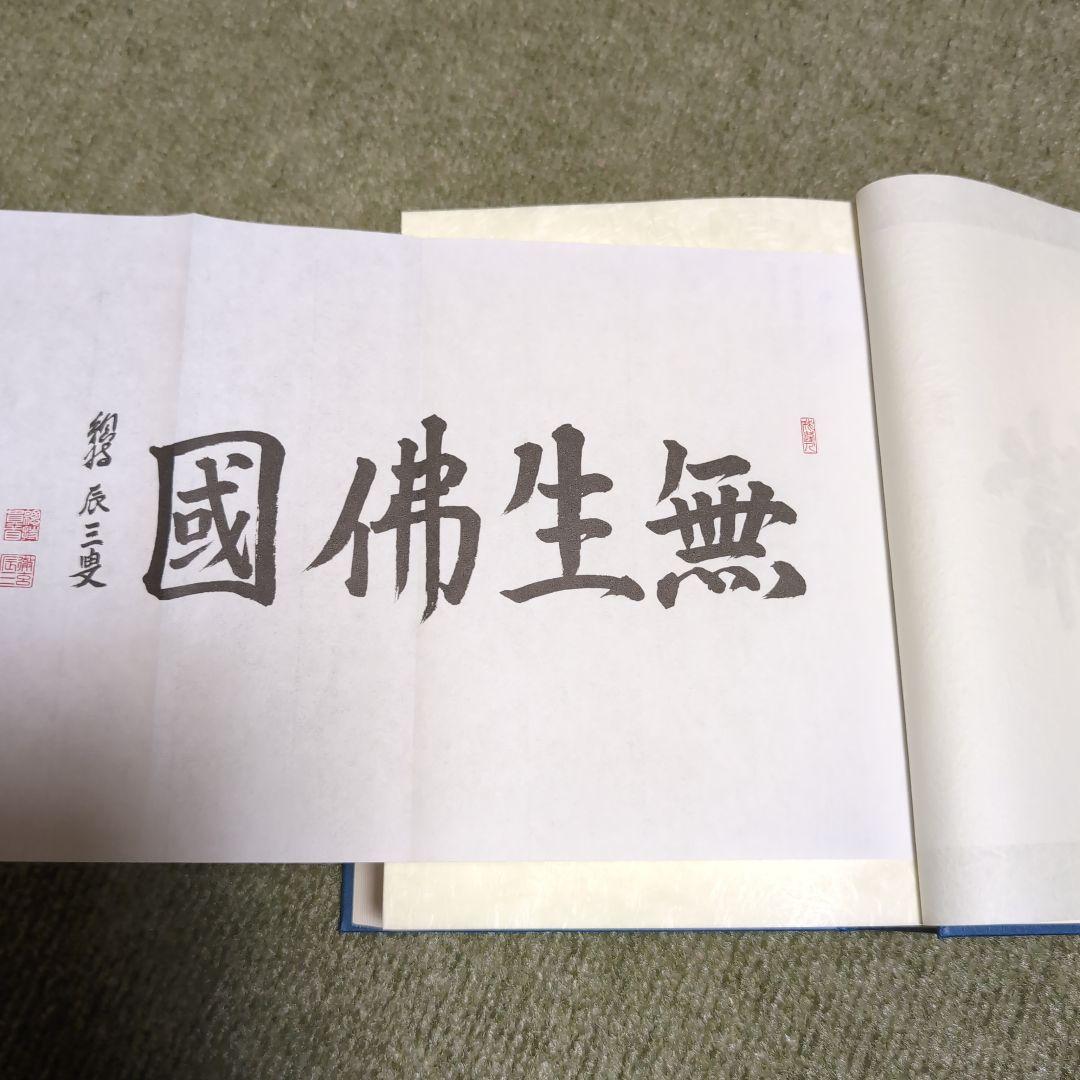 無生佛國
辰三叟